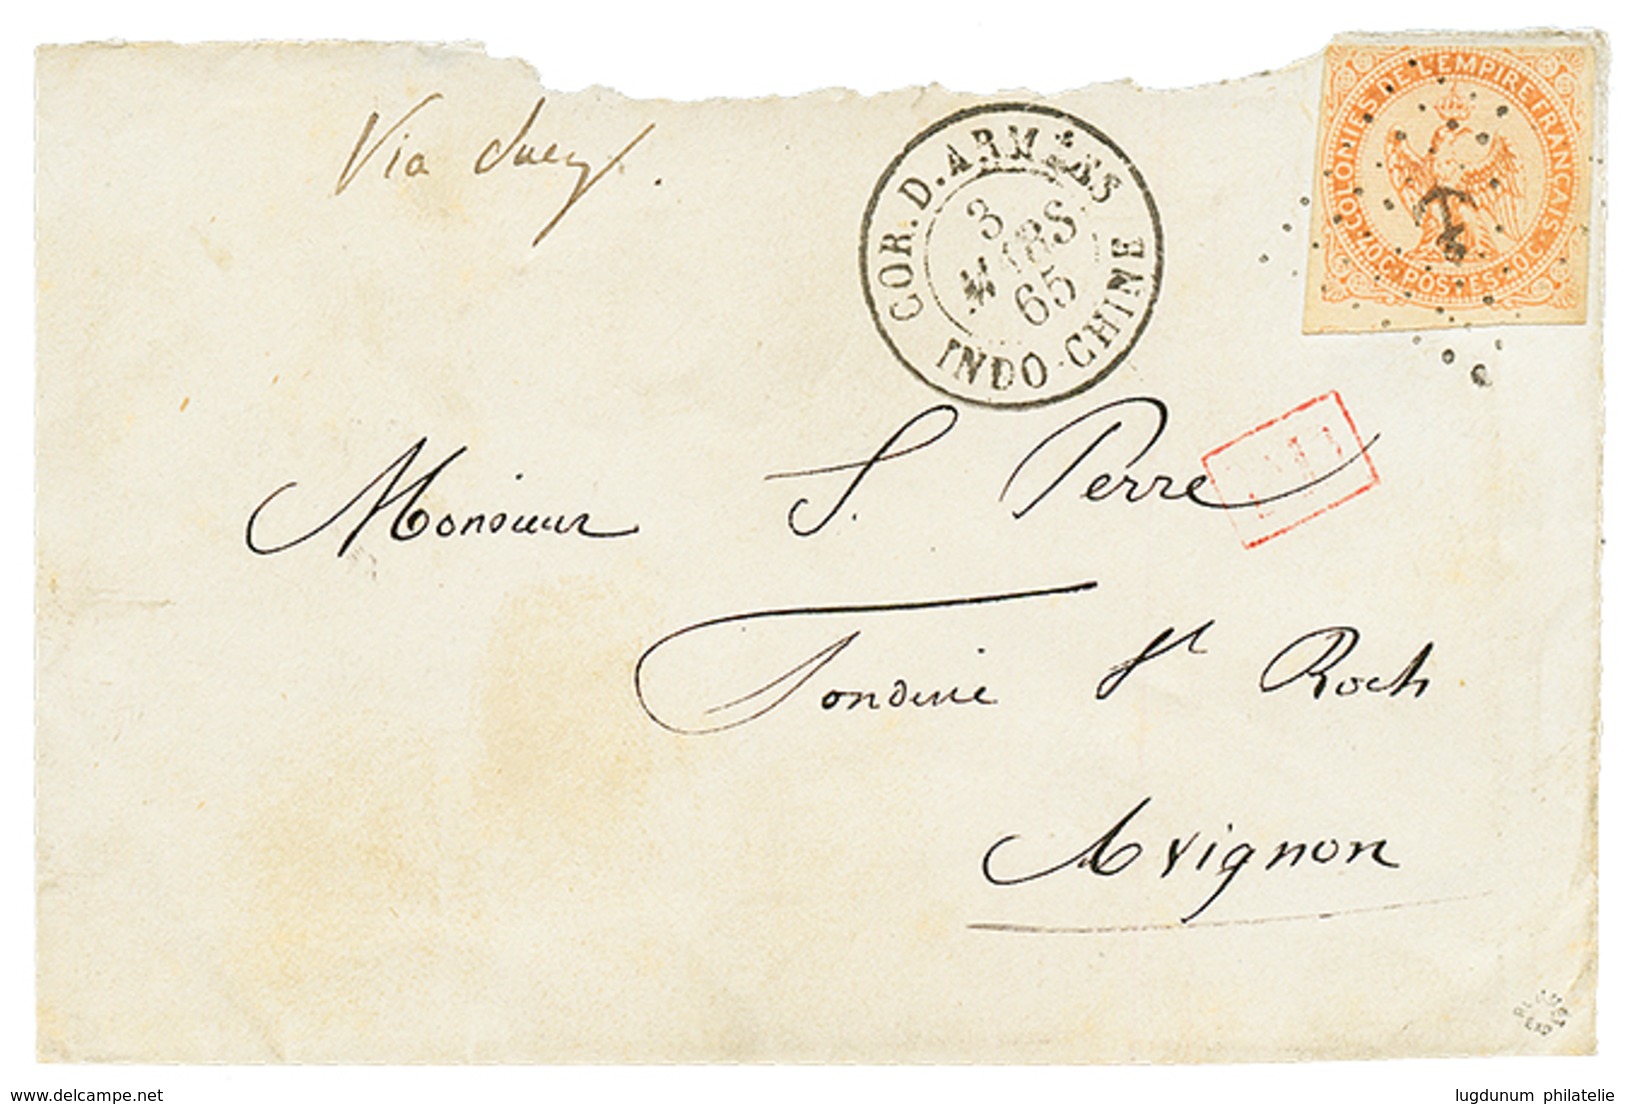 Via Suez.
COLONIES DE L'EMPIRE FRANÇAIS.
40 C. POSTES 40 C.
COR. D. ARMÉES
3
MARS
65
INDO-CHINE
Monsieur S. Perre
Fonderie St Roch
Avignon
www.delcampe.net
lugdunum philatelie